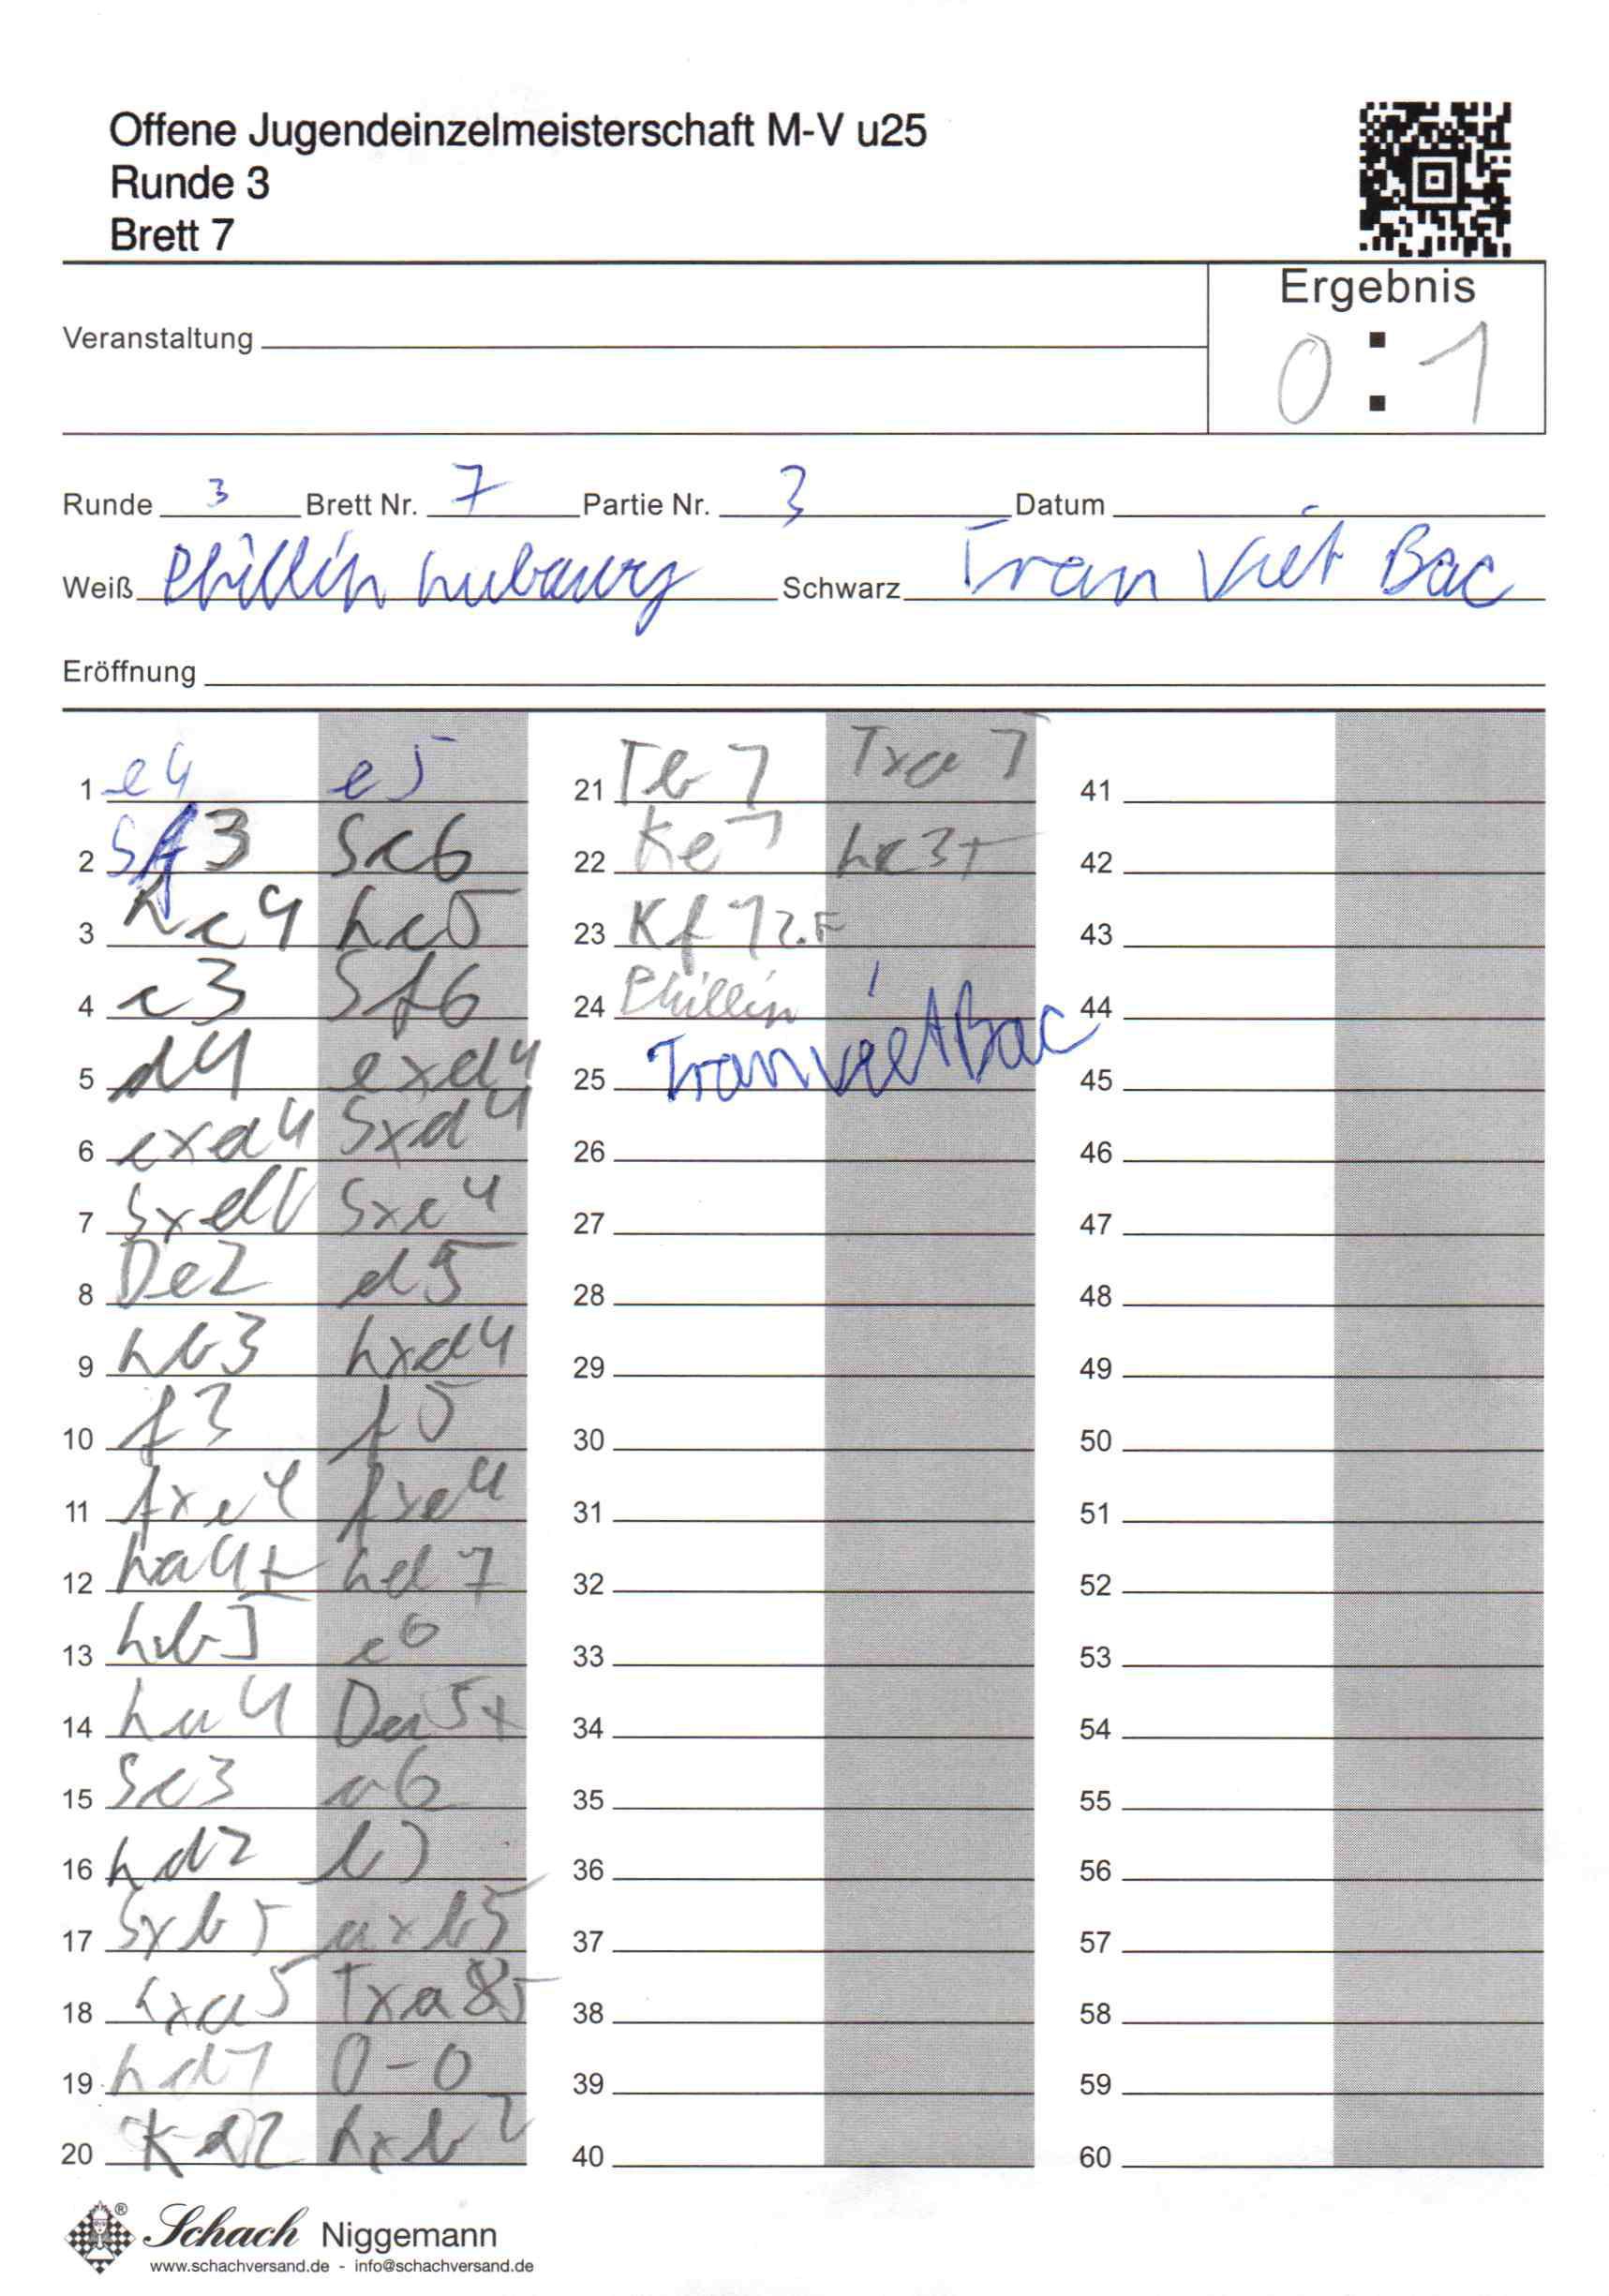 Offene Jugendeinzelmeisterschaft M-V u25
Runde 3
Brett 7
Ergebnis
0 : 1
Veranstaltung
Runde 3 Brett Nr. 7 Partie Nr. 3 Datum
Weiß Phillin Schwarz Tran Viet Bac
Eröffnung
1 e4 e5 21 Tb7 Txa7 41
2 Sf3 Sc6 22 Ke1 Lc3+ 42
3 Lc4 Lc5 23 Kf1 43
4 c3 Sf6 24 Phillin 44
5 d4 exd4 25 Tran Viet Bac 45
6 cxd4 Sxd4 26 46
7 Sxd4 Sxe4 27 47
8 De2 d5 28 48
9 Lb3 Lxd4 29 49
10 f3 f5 30 50
11 fxe4 fxe4 31 51
12 La4+ Ld7 32 52
13 Lb5 c6 33 53
14 La4 Da5+ 34 54
15 Sc3 a6 35 55
16 Ld2 b5 36 56
17 Sxb5 axb5 37 57
18 Lxa5 Txa5 38 58
19 Ld1 0-0 39 59
20 Kd2 Lxb2 40 60
Schach Niggemann
www.schachversand.de - info@schachversand.de